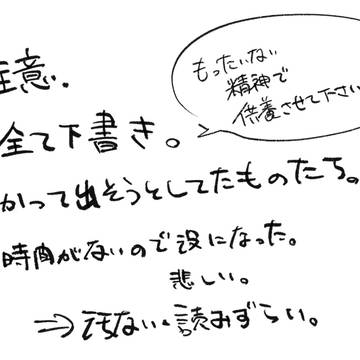 注意.
全て下書き。
もったいない
精神で
供養させて下さい
かって出そうとしてたものたち。
時間がないので没になった。
悲しい。
⇒汚ない・読みずらい。